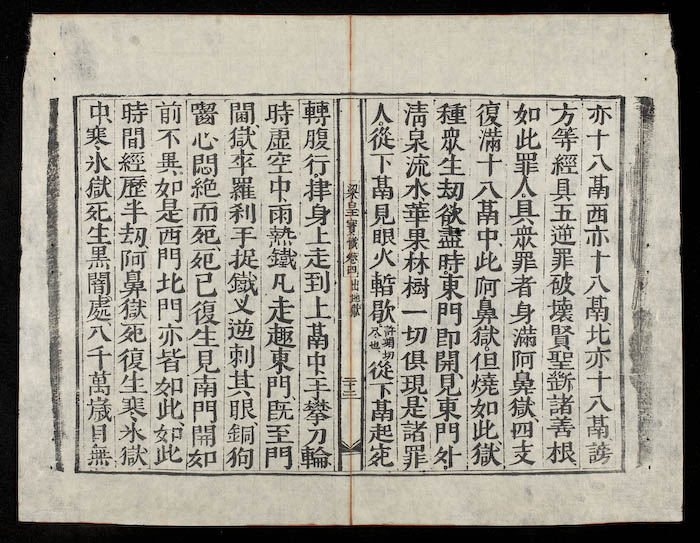 亦十八鬲西亦十八鬲北亦十八鬲謗
方等經具五逆罪破壞賢聖斷諸善根
如此罪人具眾罪者身滿阿鼻獄四支
復滿十八鬲中此阿鼻獄但燒如此獄
種眾生劫欲盡時東門即開見東門外
清泉流水華果林樹一切俱現是諸罪
人從下鬲見眼火暫歇許竭切尽也從下鬲起宛
梁皇寶懺卷四 出地獄 二十三
轉腹行身上走到上鬲中手攀刀輪
時虛空中雨熱鐵丸走趣東門旣至門
閫獄卒羅剎手捉鐵叉逆刺其眼銅狗
齧心悶絕而死死已復生見南門開如
前不異如是西門北門亦皆如此如此
時間經歷半劫阿鼻獄死復生寒氷獄
中寒氷獄死生黑闇處八千萬歲目無